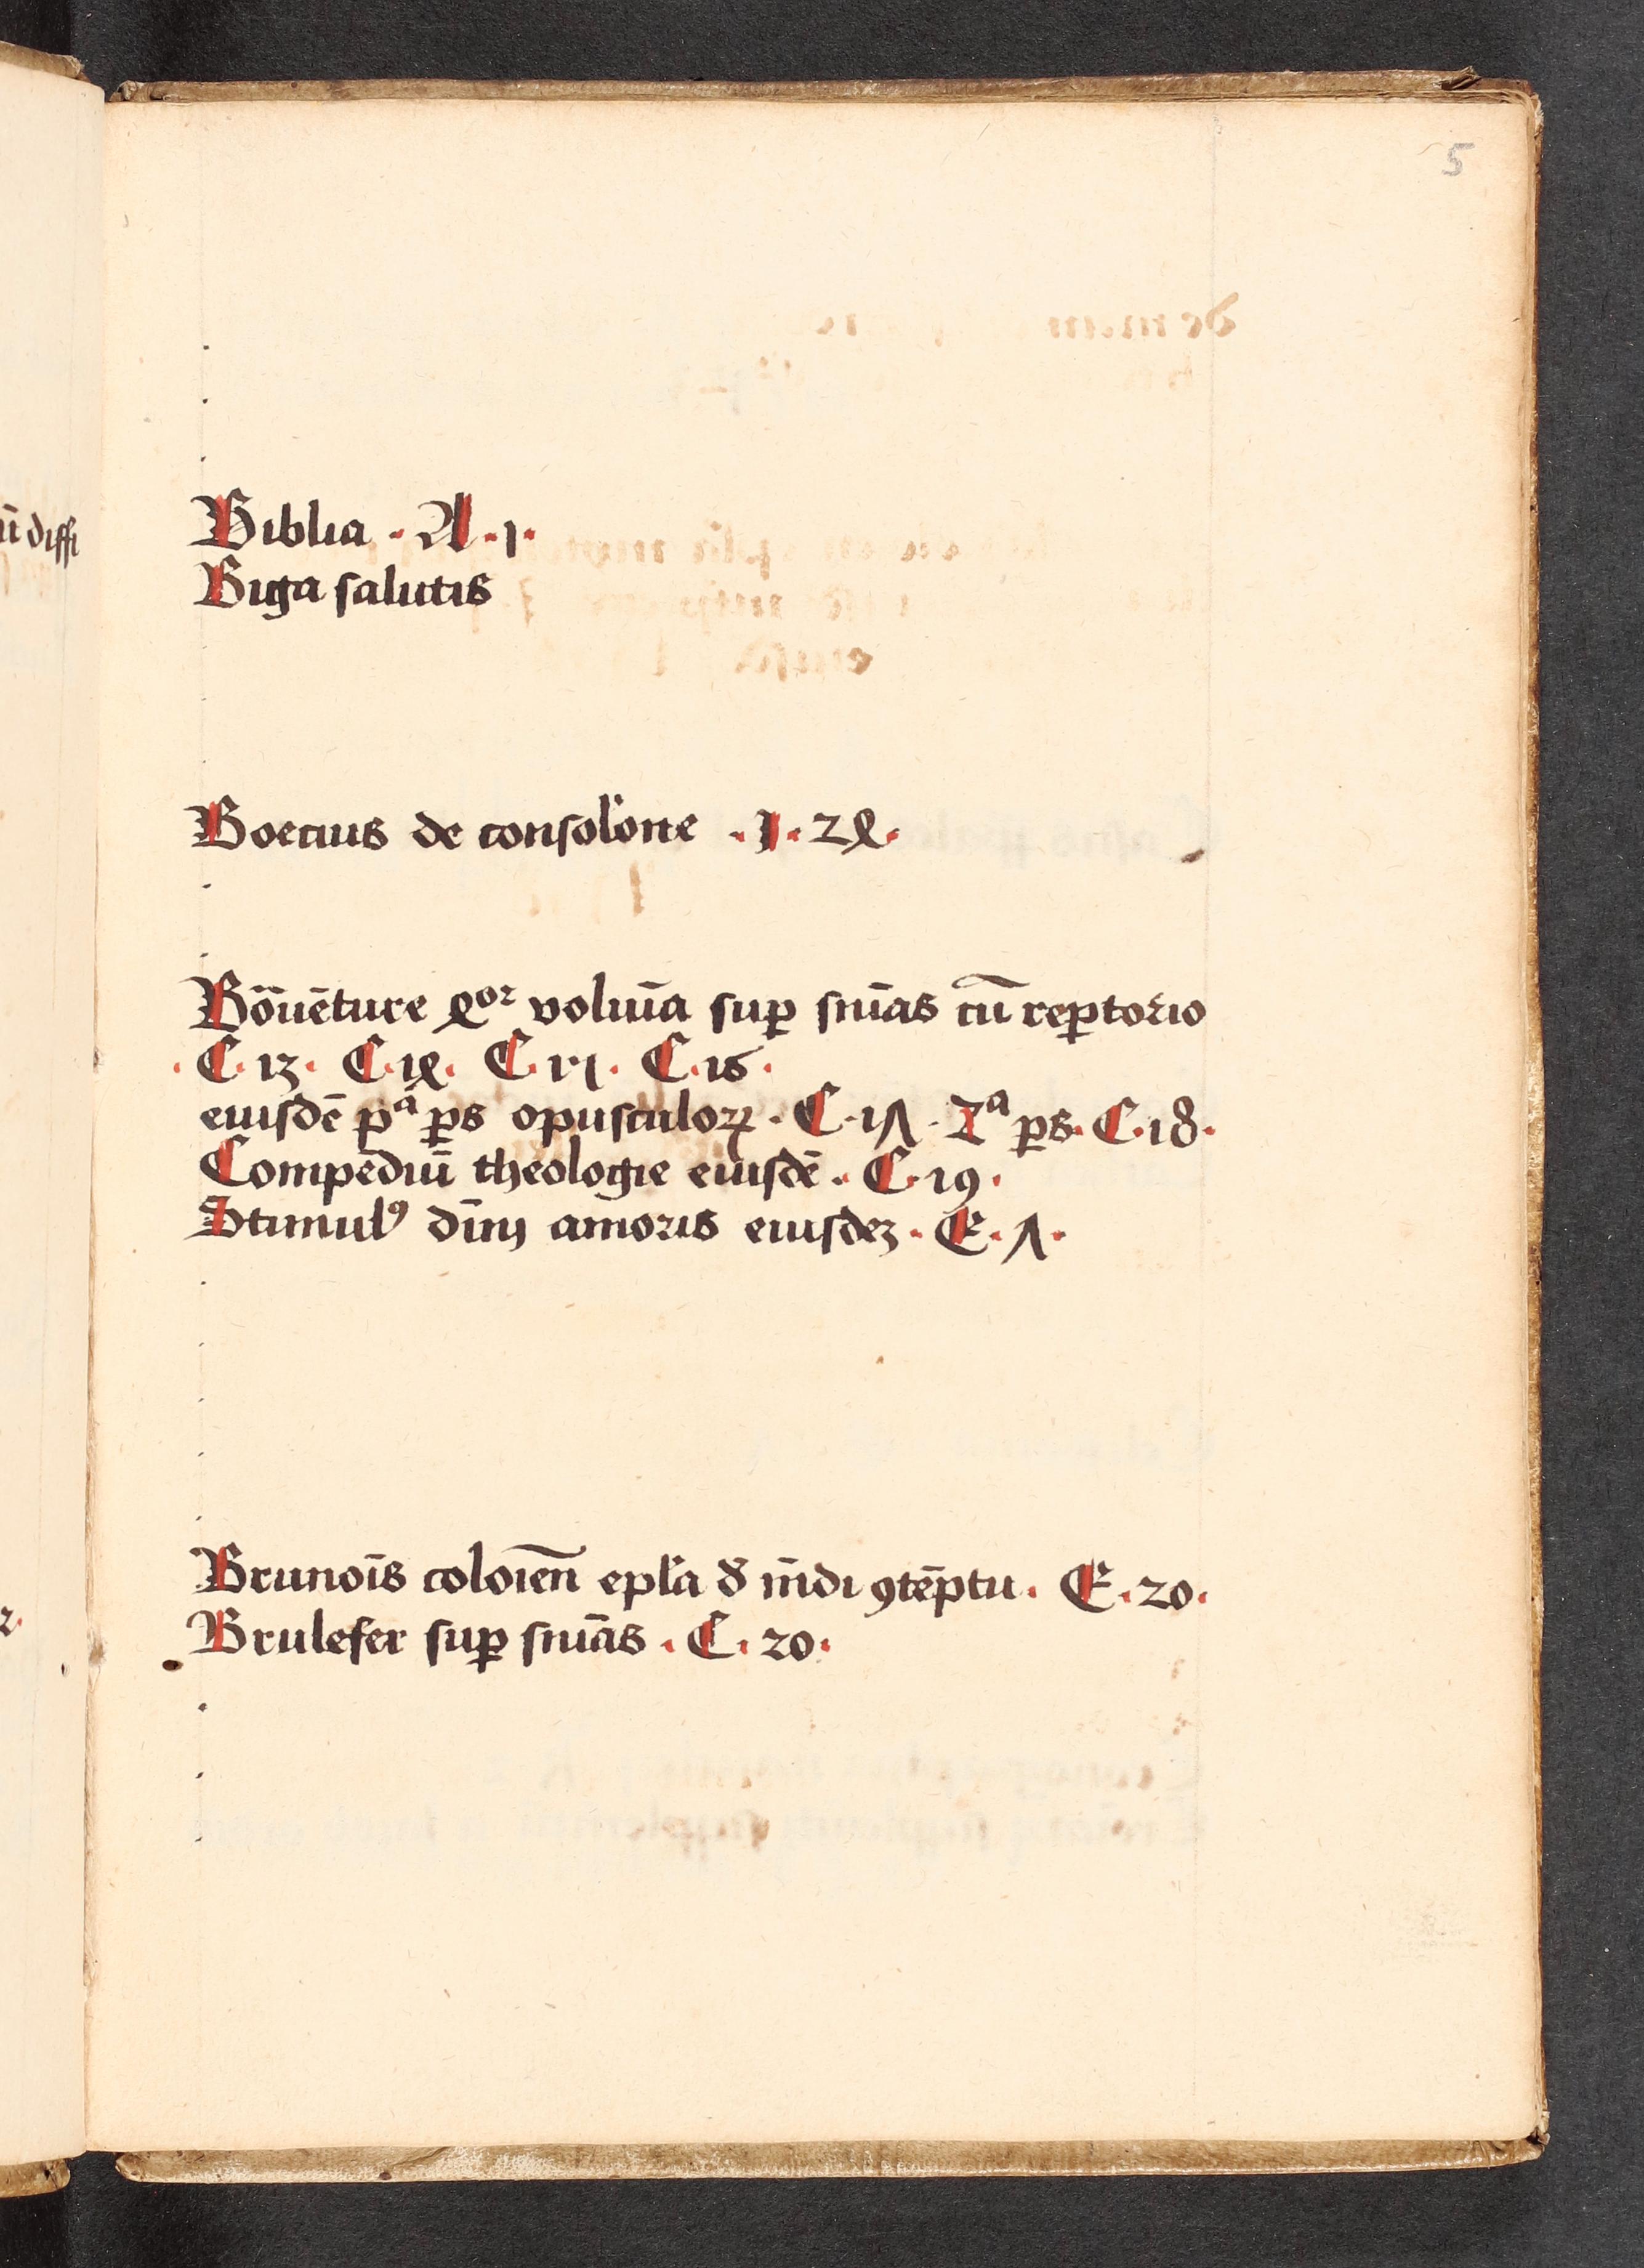 5
Biblia · A · 1 ·
Biga salutis
Boecius de consolo̅ne · I · 24 ·
Bo̅ue̅ture 4or volui̅a suꝑ sn̅ias cu̅ reꝑtorio
· C · 13 · C · 14 · C · 15 · C · 16 ·
eiusde̅ pᵃ ꝑs opusculoꝝ · C · 17 · 2ᵃ ꝑs · C · 18 ·
Compe̅diu̅ theologie eiusde̅ · C · 19 ·
Stimulꝰ diui̅ amoris eiusdeꝫ · E · 7 ·
Brunoi̅s coloien̅ epl̅a đ mu̅di ꝯte̅ptu · E · 20 ·
Brulefer suꝑ sn̅ias · C · 20 ·